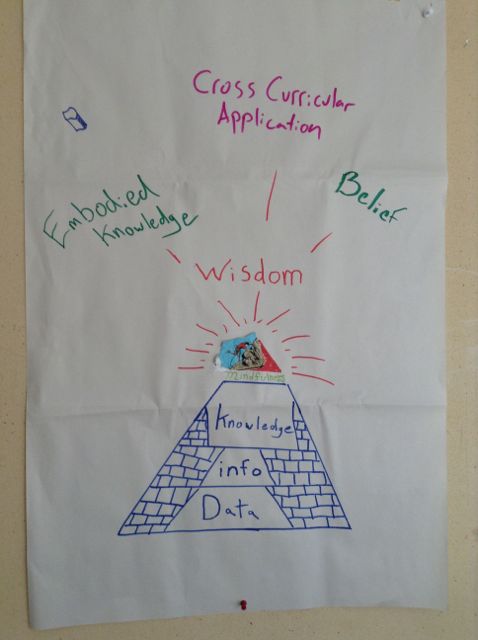 Cross Curricular
Application
Embodied
Knowledge
Belief
Wisdom
mindfulness
Knowledge
info
Data